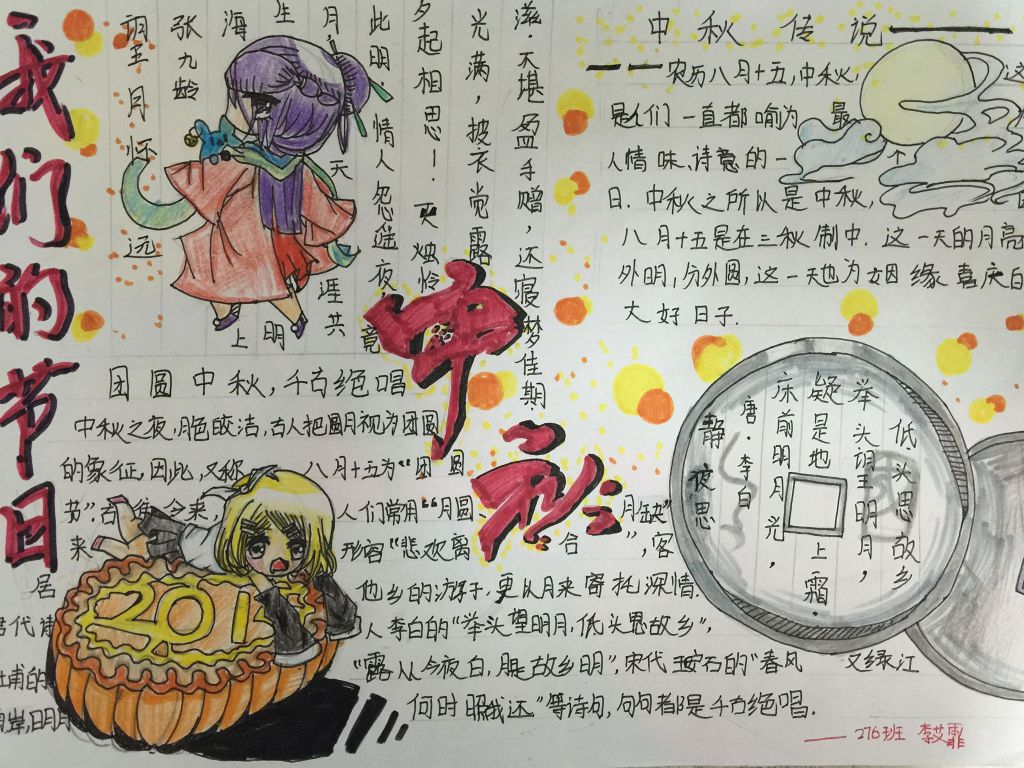 我们的节日
中秋
张九龄
海
生
明
月,
天
涯
共
此
情人怨遥夜,
竟
夕起相思!
灭烛怜
光满,披衣觉露
滋.不堪盈手赠,还寝梦佳期.
中秋传说
农历八月十五,中秋,这
是人们一直都喻为最
人情味,诗意的一
日.中秋之所以是中秋,
八月十五是在三秋制中.这一天的月亮
外明,分外圆,这一天也为姻缘喜庆
大好日子.
团圆中秋,千古绝唱
中秋之夜,月色皎洁,古人把圆月视为团圆
的象征,因此,又称八月十五为"团圆
节".古往今来,人们常用"月圆月缺"
来形容"悲欢离合",客
居他乡的游子,更以月来寄托深情.
唐代诗人李白的"举头望明月,低头思故乡",
杜甫的"露从今夜白,月是故乡明",宋代王安石的"春风又绿江
南岸,明月何时照我还"等诗句,句句都是千古绝唱.
静夜思
唐·李白
床前明月光,
疑是地上霜.
举头望明月,
低头思故乡
201
276班 李艾霏